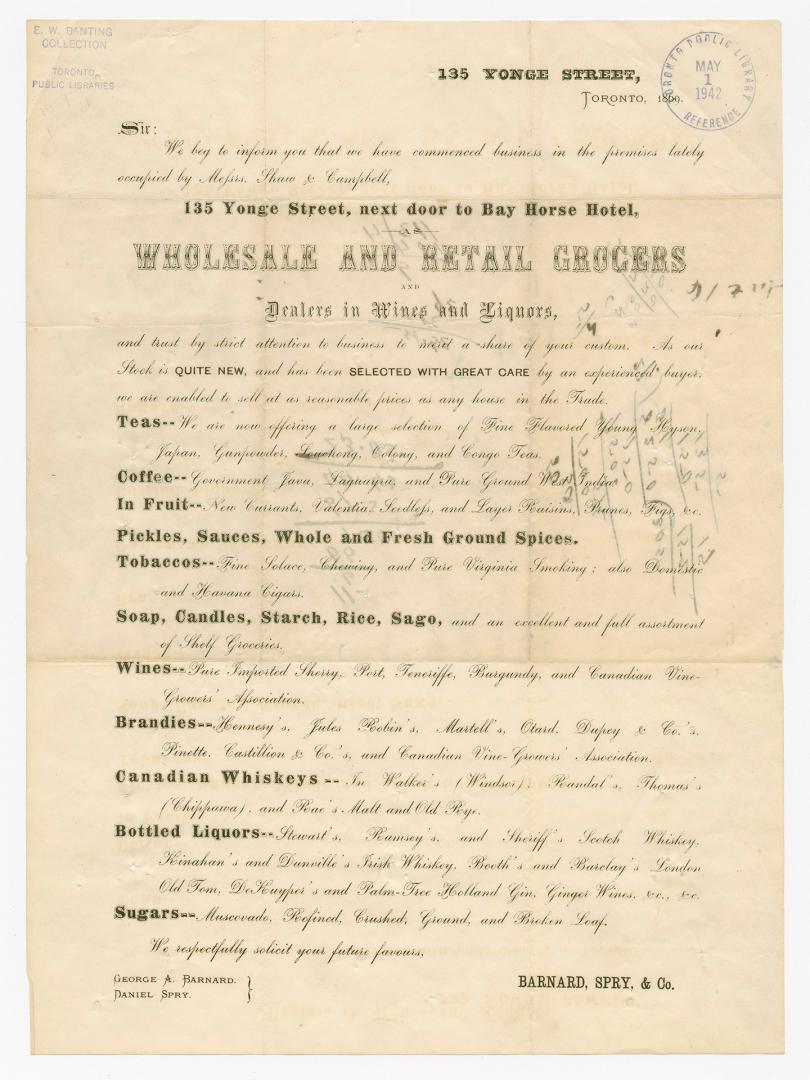 E. W. BANTING
COLLECTION
TORONTO
PUBLIC LIBRARIES
TORONTO PUBLIC LIBRARY
MAY
1
1942
REFERENCE
135 YONGE STREET,
TORONTO, 1869.
Sir:
We beg to inform you that we have commenced business in the premises lately
occupied by Messrs. Shaw & Campbell,
135 Yonge Street, next door to Bay Horse Hotel,
AS
WHOLESALE AND RETAIL GROCERS
AND
Dealers in Wines and Liquors,
and trust by strict attention to business to merit a share of your custom. As our
Stock is QUITE NEW, and has been SELECTED WITH GREAT CARE by an experienced buyer,
we are enabled to sell at as reasonable prices as any house in the Trade.
Teas--We are now offering a large selection of Fine Flavored Young Hyson,
Japan, Gunpowder, Souchong, Oolong, and Congo Teas.
Coffee--Government Java, Laguayra, and Pure Ground West India
In Fruit--New Currants, Valentia, Seedless, and Layer Raisins, Prunes, Figs, &c.
Pickles, Sauces, Whole and Fresh Ground Spices.
Tobaccos--Fine Solace, Chewing, and Pure Virginia Smoking; also Domestic
and Havana Cigars.
Soap, Candles, Starch, Rice, Sago, and an excellent and full assortment
of Shelf Groceries.
Wines--Pure Imported Sherry, Port, Teneriffe, Burgundy, and Canadian Vine-
Growers' Association.
Brandies--Hennesy's, Jules Robin's, Martell's, Otard, Dupey & Co.'s,
Pinette, Castillion & Co.'s, and Canadian Vine-Growers' Association.
Canadian Whiskeys--In Walker's (Windsor), Randal's, Thomas's
(Chippawa), and Rae's Malt and Old Rye.
Bottled Liquors--Stewart's, Ramsey's, and Sheriff's Scotch Whiskey,
Kinahan's and Dunville's Irish Whiskey, Booth's and Barclay's London
Old Tom, DeKuyper's and Palm-Tree Holland Gin, Ginger Wines, &c., &c.
Sugars--Muscovado, Refined, Crushed, Ground, and Broken Loaf.
We respectfully solicit your future favours,
GEORGE A. BARNARD.
DANIEL SPRY.
BARNARD, SPRY, & Co.